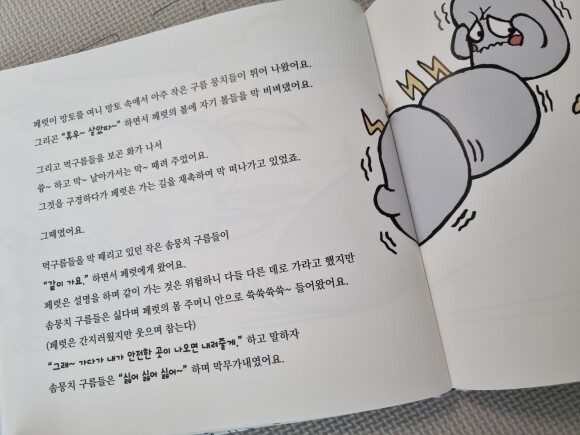 페럿이 망토를 여니 망토 속에서 아주 작은 구름 뭉치들이 튀어 나왔어요.
그리곤 “휴우~ 살았다~” 하면서 페럿의 볼에 자기 볼들을 막 비벼댔어요.
그리고 먹구름들을 보곤 화가 나서
쓩~ 하고 막~ 날아가서는 막~ 때려 주었어요.
그것을 구경하다가 페럿은 가는 길을 재촉하여 막 떠나가고 있었죠.
그때였어요.
먹구름들을 막 때리고 있던 작은 솜뭉치 구름들이
“같이 가요.” 하면서 페럿에게 왔어요.
페럿은 설명을 하며 같이 가는 것은 위험하니 다들 다른 데로 가라고 했지만
솜뭉치 구름들은 싫다며 페럿의 몸 주머니 안으로 쏙쏙쏙쏙~ 들어왔어요.
(페럿은 간지러웠지만 웃으며 참는다)
“그래~ 가다가 내가 안전한 곳이 나오면 내려줄게.” 하고 말하자
솜뭉치 구름들은 “싫어 싫어 싫어~” 하며 막무가내였어요.